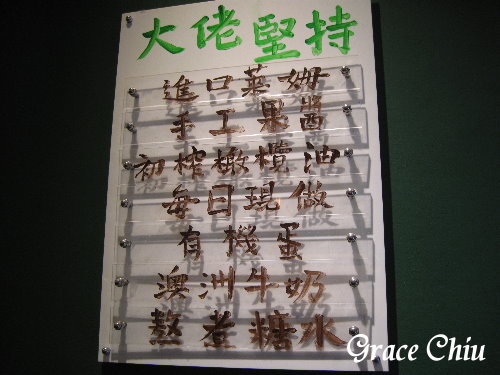 大佬堅持
進口萊姆
手工果醬
初榨橄欖油
每日現做
有機蛋
澳洲牛奶
熬煮糖水
Grace Chiu